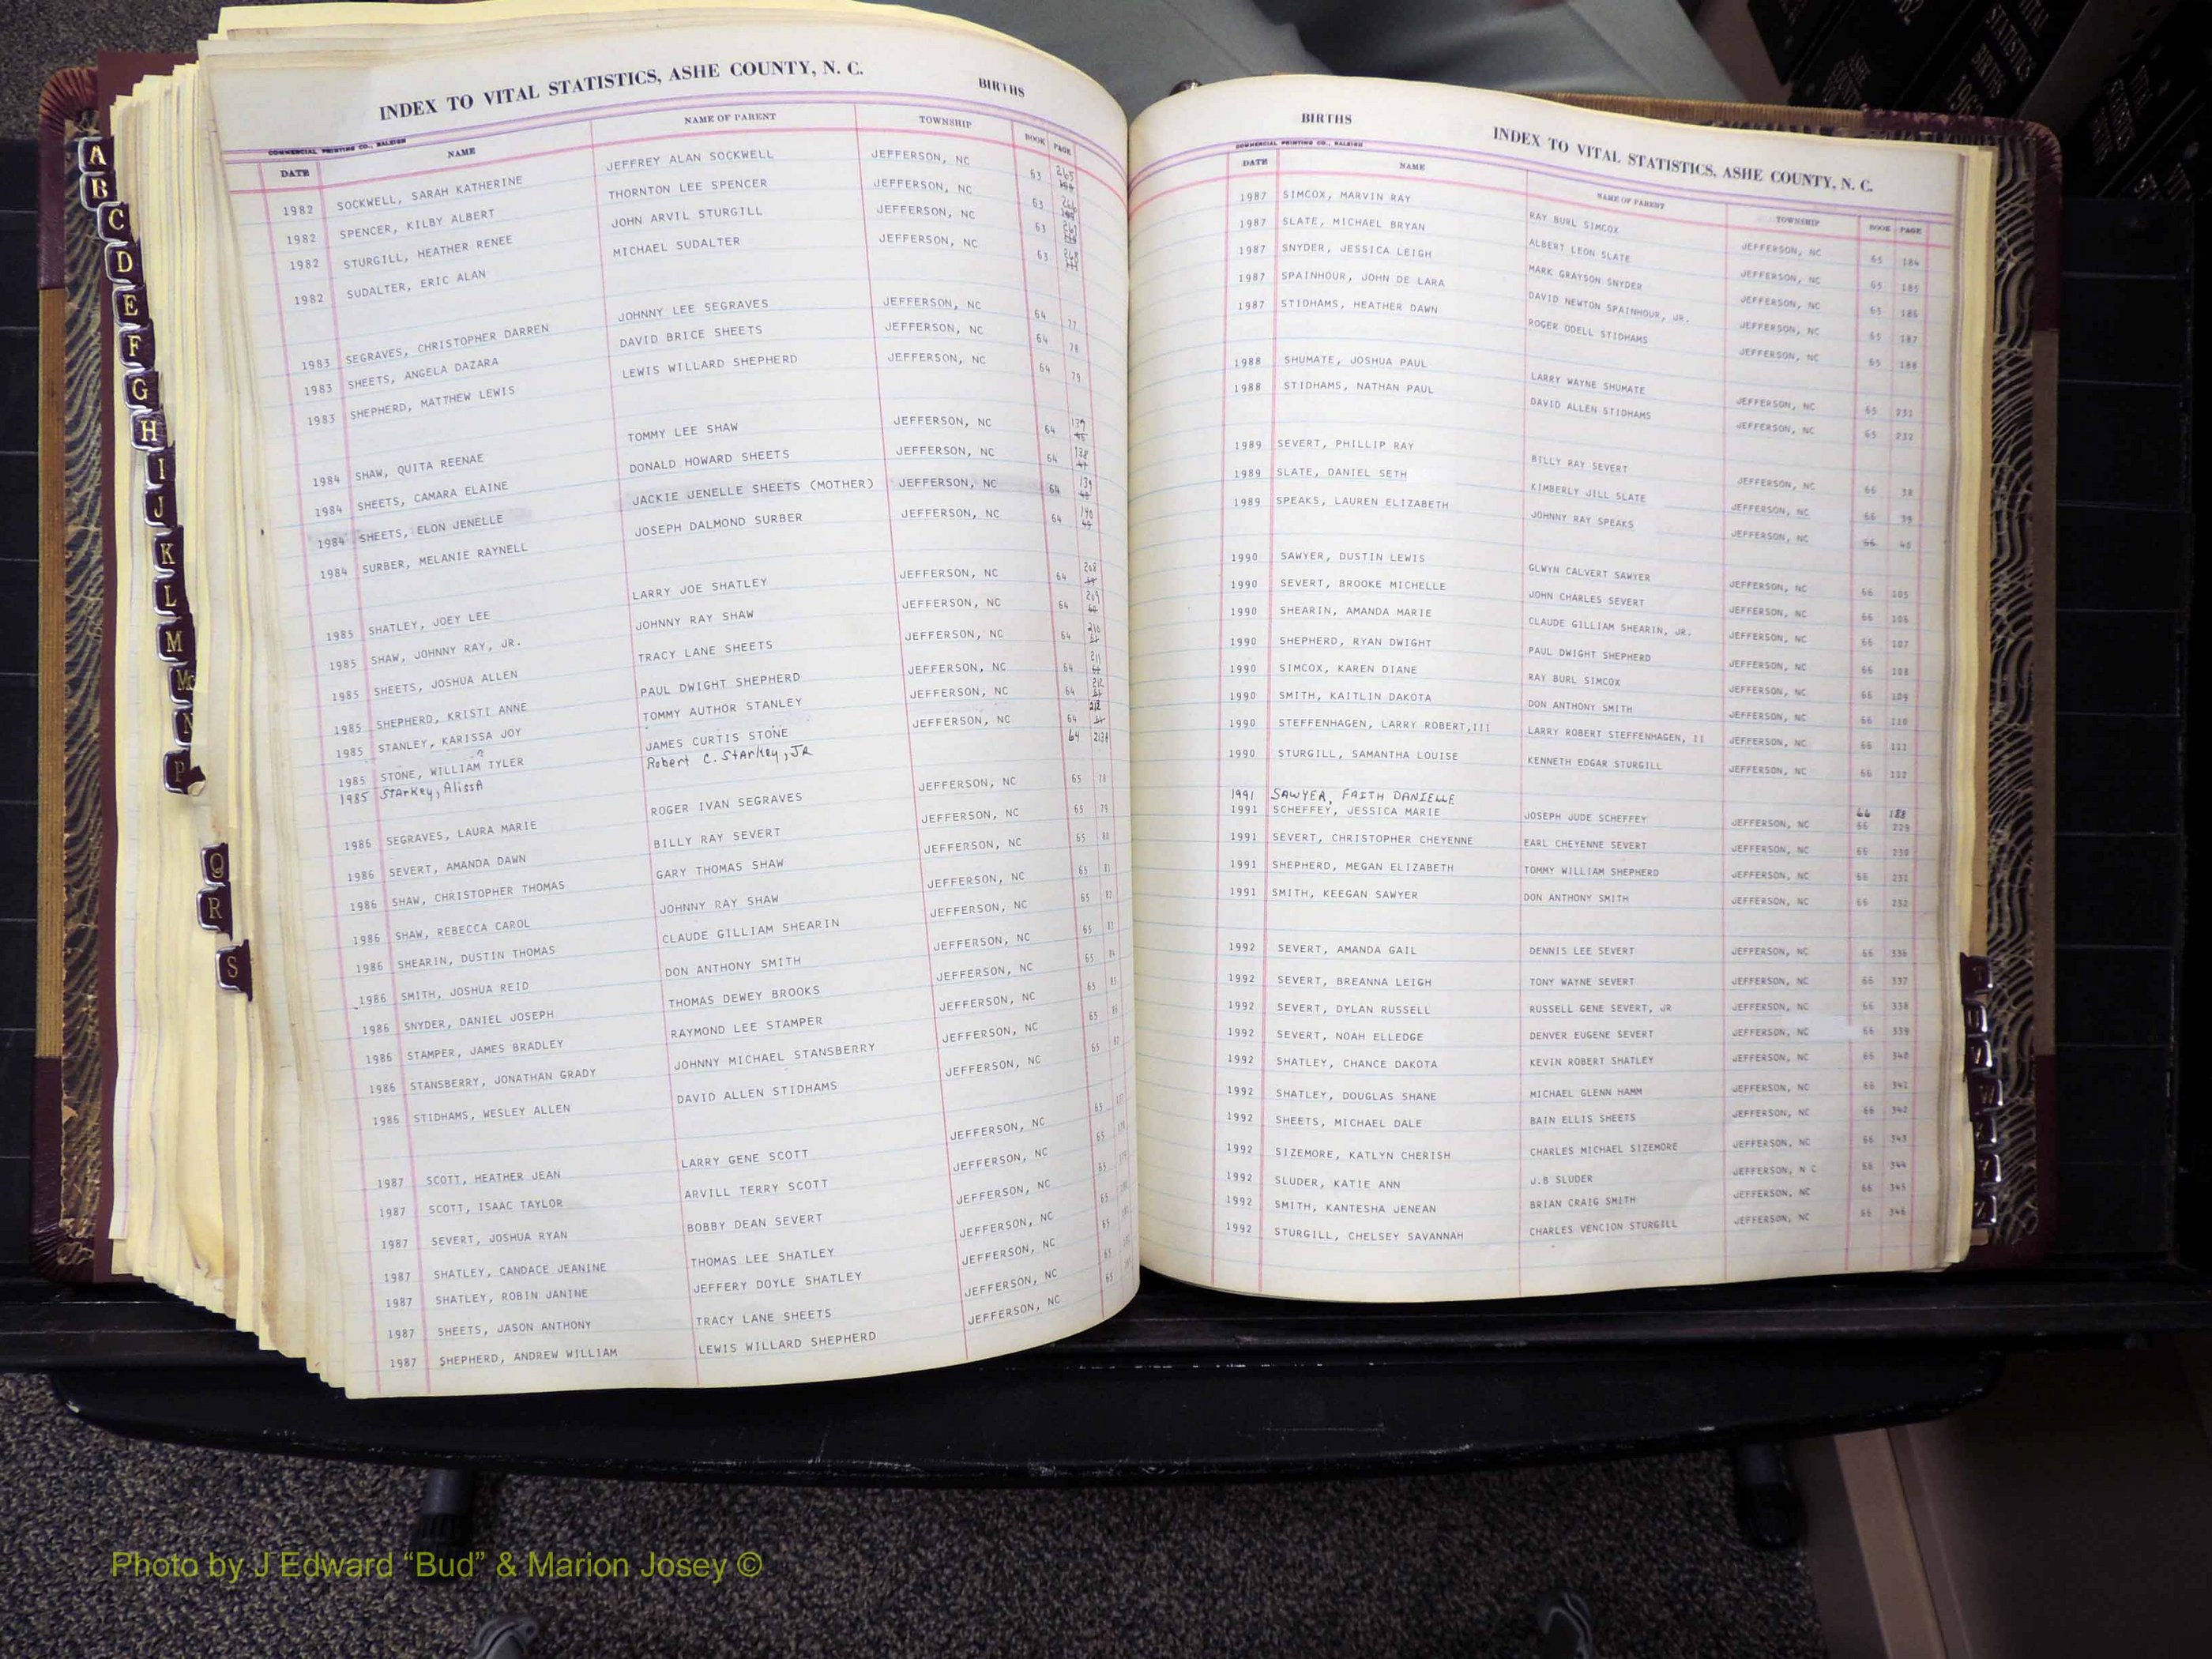 INDEX TO VITAL STATISTICS, ASHE COUNTY, N. C. BIRTHS
COMMERCIAL PRINTING CO., RALEIGH
DATE NAME NAME OF PARENT TOWNSHIP BOOK PAGE
1982 SOCKWELL, SARAH KATHERINE JEFFREY ALAN SOCKWELL JEFFERSON, NC 63 265
1982 SPENCER, KILBY ALBERT THORNTON LEE SPENCER JEFFERSON, NC 63 266
1982 STURGILL, HEATHER RENEE JOHN ARVIL STURGILL JEFFERSON, NC 63 267
1982 SUDALTER, ERIC ALAN MICHAEL SUDALTER JEFFERSON, NC 63 268
1983 SEGRAVES, CHRISTOPHER DARREN JOHNNY LEE SEGRAVES JEFFERSON, NC 64 77
1983 SHEETS, ANGELA DAZARA DAVID BRICE SHEETS JEFFERSON, NC 64 78
1983 SHEPHERD, MATTHEW LEWIS LEWIS WILLARD SHEPHERD JEFFERSON, NC 64 79
1984 SHAW, QUITA REENAE TOMMY LEE SHAW JEFFERSON, NC 64
1984 SHEETS, CAMARA ELAINE DONALD HOWARD SHEETS JEFFERSON, NC 64 138
1984 SHEETS, ELON JENELLE JACKIE JENELLE SHEETS (MOTHER) JEFFERSON, NC 64 139
1984 SURBER, MELANIE RAYNELL JOSEPH DALMOND SURBER JEFFERSON, NC 64 140
1985 SHATLEY, JOEY LEE LARRY JOE SHATLEY JEFFERSON, NC 64 208
1985 SHAW, JOHNNY RAY, JR. JOHNNY RAY SHAW JEFFERSON, NC 64 209
1985 SHEETS, JOSHUA ALLEN TRACY LANE SHEETS JEFFERSON, NC 64 210
1985 SHEPHERD, KRISTI ANNE PAUL DWIGHT SHEPHERD JEFFERSON, NC 64 211
1985 STANLEY, KARISSA JOY TOMMY AUTHOR STANLEY JEFFERSON, NC 64 212
1985 STONE, WILLIAM TYLER JAMES CURTIS STONE JEFFERSON, NC 64
1985 Starkey, Alissa Robert C. Starkey, JR 64
1986 SEGRAVES, LAURA MARIE ROGER IVAN SEGRAVES JEFFERSON, NC 65 78
1986 SEVERT, AMANDA DAWN BILLY RAY SEVERT JEFFERSON, NC 65 79
1986 SHAW, CHRISTOPHER THOMAS GARY THOMAS SHAW JEFFERSON, NC 65 80
1986 SHAW, REBECCA CAROL JOHNNY RAY SHAW JEFFERSON, NC 65 81
1986 SHEARIN, DUSTIN THOMAS CLAUDE GILLIAM SHEARIN JEFFERSON, NC 65 82
1986 SMITH, JOSHUA REID DON ANTHONY SMITH JEFFERSON, NC 65 83
1986 SNYDER, DANIEL JOSEPH THOMAS DEWEY BROOKS JEFFERSON, NC 65 84
1986 STAMPER, JAMES BRADLEY RAYMOND LEE STAMPER JEFFERSON, NC 65 85
1986 STANSBERRY, JONATHAN GRADY JOHNNY MICHAEL STANSBERRY JEFFERSON, NC 65 86
1986 STIDHAMS, WESLEY ALLEN DAVID ALLEN STIDHAMS JEFFERSON, NC 65 87
1987 SCOTT, HEATHER JEAN LARRY GENE SCOTT JEFFERSON, NC 65
1987 SCOTT, ISAAC TAYLOR ARVILL TERRY SCOTT JEFFERSON, NC 65
1987 SEVERT, JOSHUA RYAN BOBBY DEAN SEVERT JEFFERSON, NC 65
1987 SHATLEY, CANDACE JEANINE THOMAS LEE SHATLEY JEFFERSON, NC 65
1987 SHATLEY, ROBIN JANINE JEFFERY DOYLE SHATLEY JEFFERSON, NC 65
1987 SHEETS, JASON ANTHONY TRACY LANE SHEETS JEFFERSON, NC 65
1987 SHEPHERD, ANDREW WILLIAM LEWIS WILLARD SHEPHERD JEFFERSON, NC 65
BIRTHS INDEX TO VITAL STATISTICS, ASHE COUNTY, N. C.
COMMERCIAL PRINTING CO., RALEIGH
DATE NAME NAME OF PARENT TOWNSHIP BOOK PAGE
1987 SIMCOX, MARVIN RAY RAY BURL SIMCOX JEFFERSON, NC 65 184
1987 SLATE, MICHAEL BRYAN ALBERT LEON SLATE JEFFERSON, NC 65 185
1987 SNYDER, JESSICA LEIGH MARK GRAYSON SNYDER JEFFERSON, NC 65 186
1987 SPAINHOUR, JOHN DE LARA DAVID NEWTON SPAINHOUR, JR. JEFFERSON, NC 65 187
1987 STIDHAMS, HEATHER DAWN ROGER ODELL STIDHAMS JEFFERSON, NC 65 188
1988 SHUMATE, JOSHUA PAUL LARRY WAYNE SHUMATE JEFFERSON, NC 65 231
1988 STIDHAMS, NATHAN PAUL DAVID ALLEN STIDHAMS JEFFERSON, NC 65 232
1989 SEVERT, PHILLIP RAY BILLY RAY SEVERT JEFFERSON, NC 66 38
1989 SLATE, DANIEL SETH KIMBERLY JILL SLATE JEFFERSON, NC 66 39
1989 SPEAKS, LAUREN ELIZABETH JOHNNY RAY SPEAKS JEFFERSON, NC 66 40
1990 SAWYER, DUSTIN LEWIS GLWYN CALVERT SAWYER JEFFERSON, NC 66 105
1990 SEVERT, BROOKE MICHELLE JOHN CHARLES SEVERT JEFFERSON, NC 66 106
1990 SHEARIN, AMANDA MARIE CLAUDE GILLIAM SHEARIN, JR. JEFFERSON, NC 66 107
1990 SHEPHERD, RYAN DWIGHT PAUL DWIGHT SHEPHERD JEFFERSON, NC 66 108
1990 SIMCOX, KAREN DIANE RAY BURL SIMCOX JEFFERSON, NC 66 109
1990 SMITH, KAITLIN DAKOTA DON ANTHONY SMITH JEFFERSON, NC 66 110
1990 STEFFENHAGEN, LARRY ROBERT,III LARRY ROBERT STEFFENHAGEN, II JEFFERSON, NC 66 111
1990 STURGILL, SAMANTHA LOUISE KENNETH EDGAR STURGILL JEFFERSON, NC 66 112
1991 SAWYER, FAITH DANIELLE 66
1991 SCHEFFEY, JESSICA MARIE JOSEPH JUDE SCHEFFEY JEFFERSON, NC 66 229
1991 SEVERT, CHRISTOPHER CHEYENNE EARL CHEYENNE SEVERT JEFFERSON, NC 66 230
1991 SHEPHERD, MEGAN ELIZABETH TOMMY WILLIAM SHEPHERD JEFFERSON, NC 66 231
1991 SMITH, KEEGAN SAWYER DON ANTHONY SMITH JEFFERSON, NC 66 232
1992 SEVERT, AMANDA GAIL DENNIS LEE SEVERT JEFFERSON, NC 66 336
1992 SEVERT, BREANNA LEIGH TONY WAYNE SEVERT JEFFERSON, NC 66 337
1992 SEVERT, DYLAN RUSSELL RUSSELL GENE SEVERT, JR JEFFERSON, NC 66 338
1992 SEVERT, NOAH ELLEDGE DENVER EUGENE SEVERT JEFFERSON, NC 66 339
1992 SHATLEY, CHANCE DAKOTA KEVIN ROBERT SHATLEY JEFFERSON, NC 66 340
1992 SHATLEY, DOUGLAS SHANE MICHAEL GLENN HAMM JEFFERSON, NC 66 341
1992 SHEETS, MICHAEL DALE BAIN ELLIS SHEETS JEFFERSON, NC 66 342
1992 SIZEMORE, KATLYN CHERISH CHARLES MICHAEL SIZEMORE JEFFERSON, NC 66 343
1992 SLUDER, KATIE ANN J.B SLUDER JEFFERSON, N C 66 344
1992 SMITH, KANTESHA JENEAN BRIAN CRAIG SMITH JEFFERSON, NC 66 345
1992 STURGILL, CHELSEY SAVANNAH CHARLES VENCION STURGILL JEFFERSON, NC 66 346
A
B
C
D
E
F
G
H
I
J
K
L
M
Mc
N
P
Q
R
S
VITAL STATISTICS BIRTHS
Photo by J Edward “Bud” & Marion Josey ©